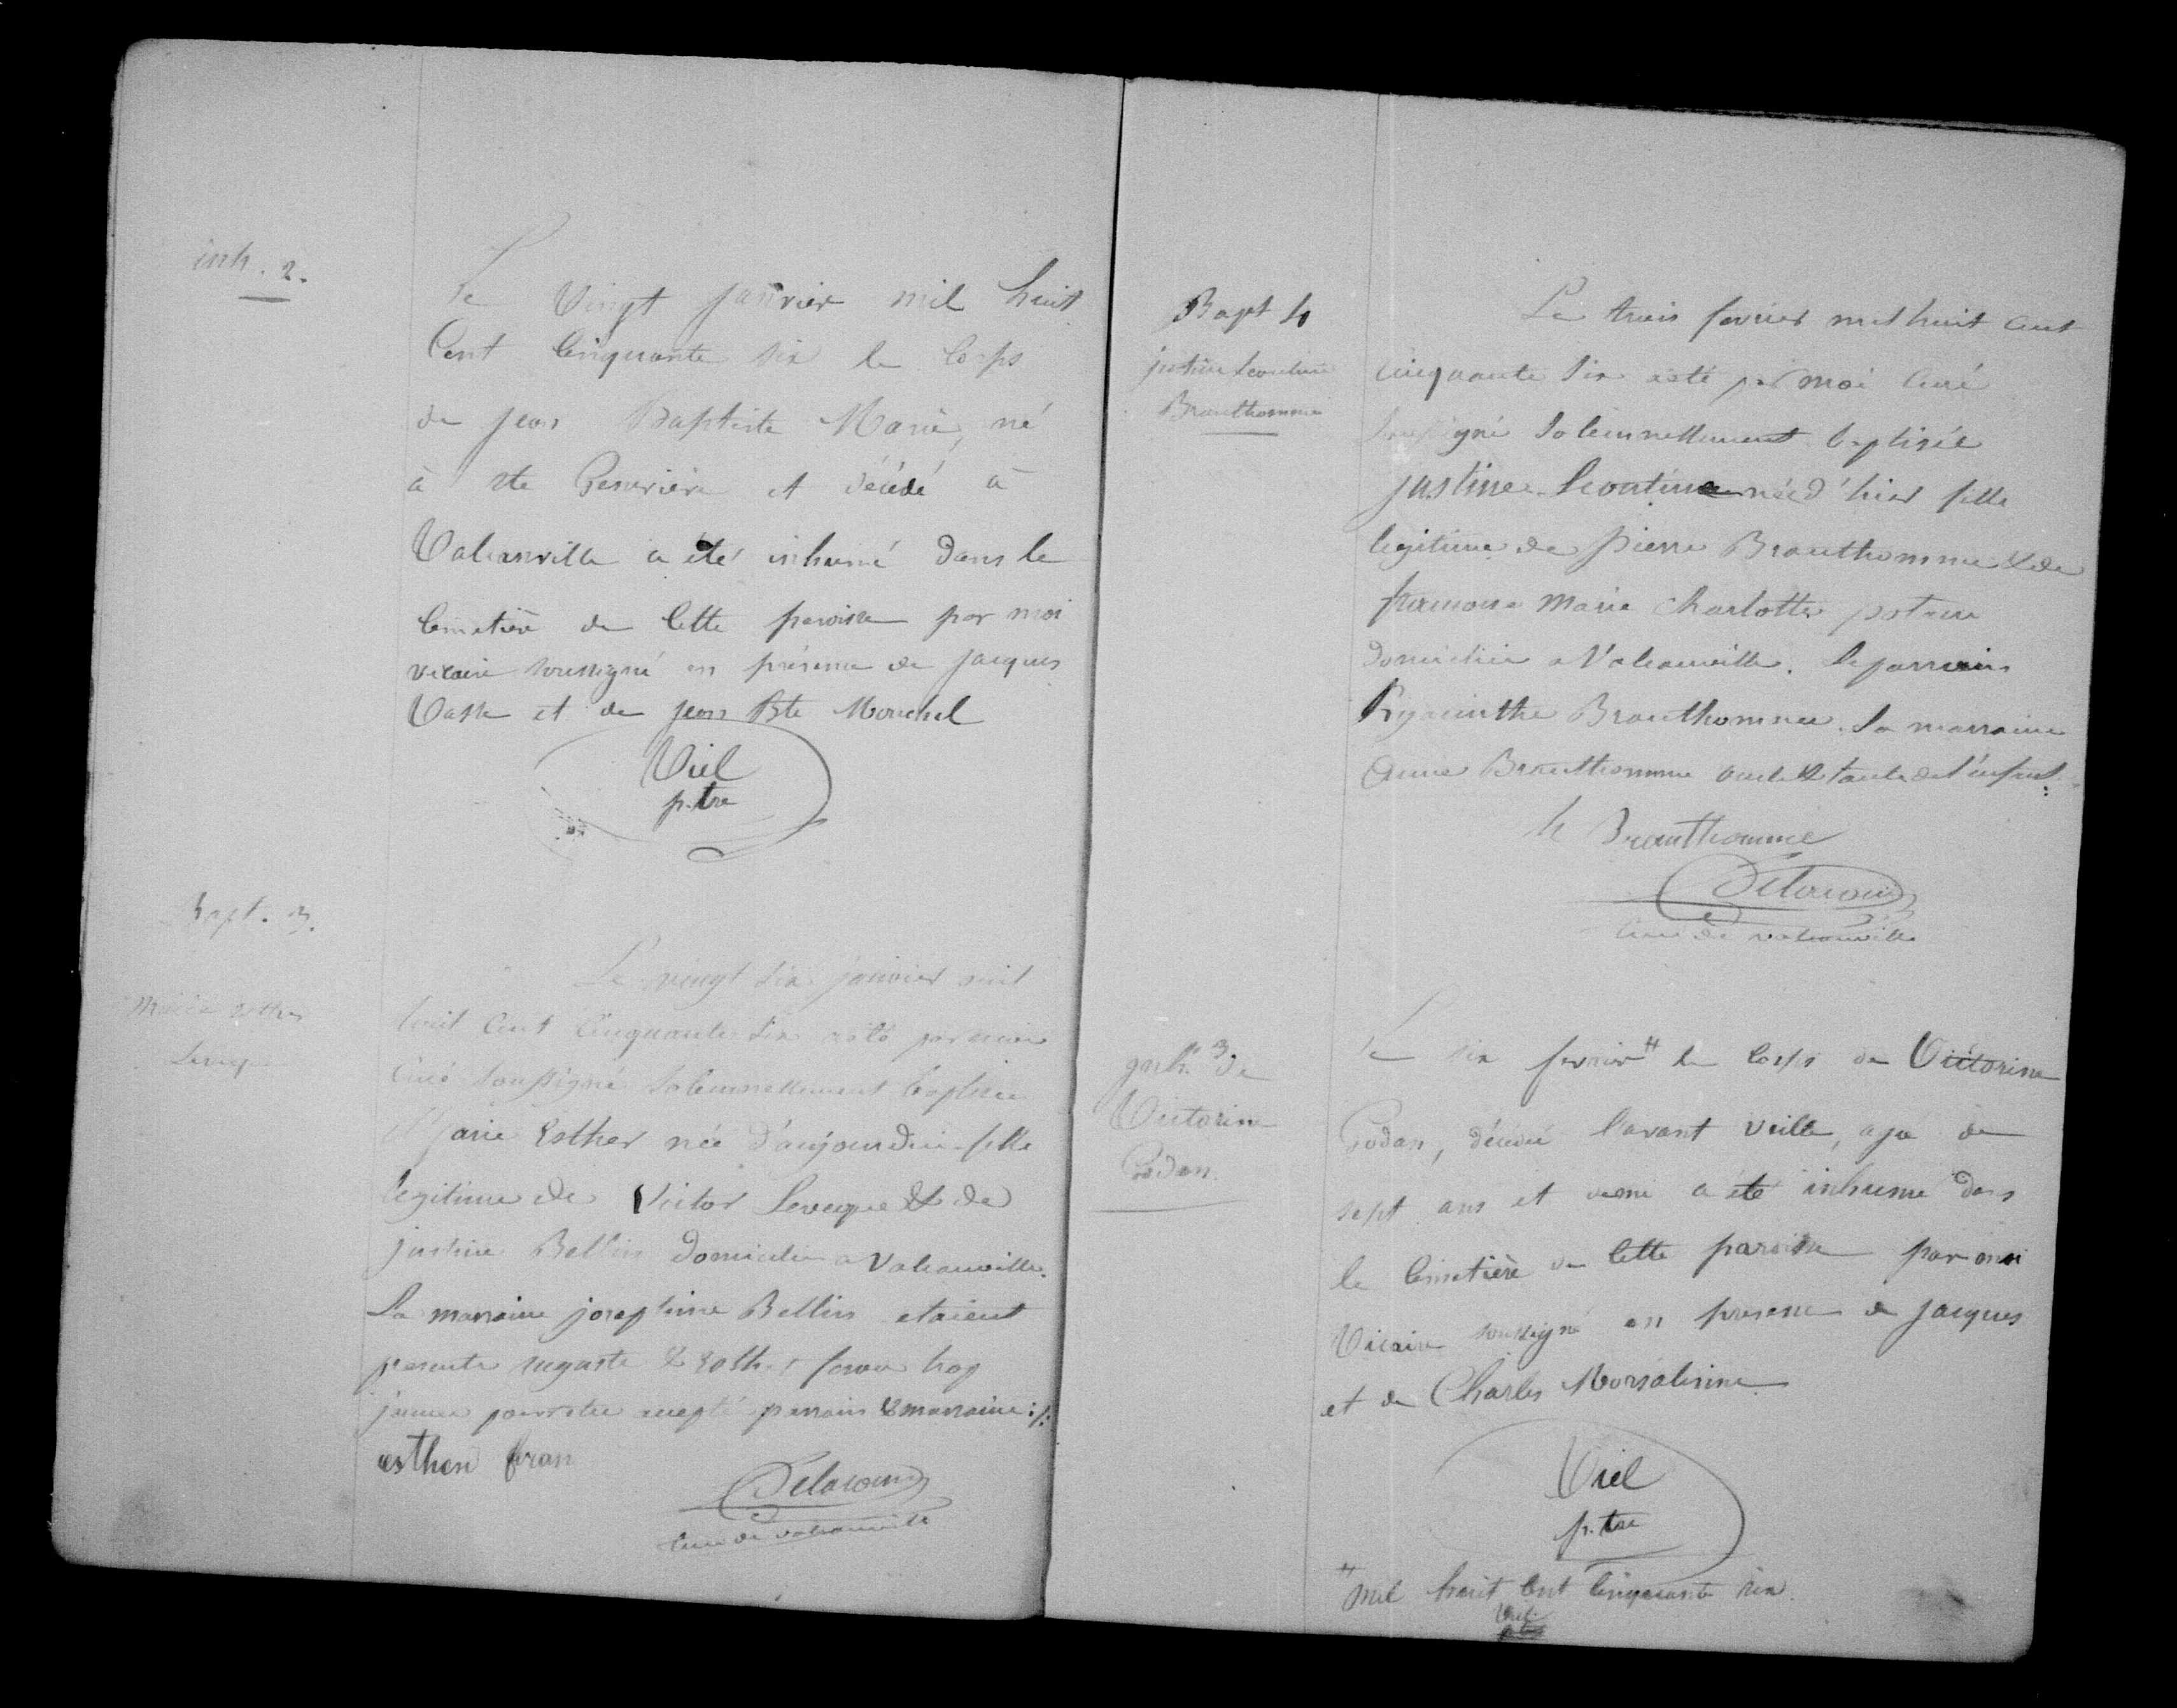 inh. 2.
Le Vingt janvier mil huit
Cent Cinquante six le Corps
de jean Baptiste Marie, né
à Ste Geneviève et décédé à
Valcanville a été inhumé dans le
Cimetière de Cette paroisse par moi
vicaire soussigné en présence de jacques
Vasse et de jean Bte Mouchel
Viel
p.tre
bapt. 3.
Marie esther
Le vingt six janvier mil
huit cent cinquante six a été par moi
curé soussigné solemnellement baptisée
Marie Esther née d'aujourdui fille
legitime de Victor Leveque & de
justine Bellin domicilie a Valcanville.
La marraine josephine Bellin etaient
presents auguste & esther trop
jeunes pour etre accepté parrain & marraine ./.
esther fran
Delacour
curé de valcanville
Bapt 4
justine Leontine
Brauthomme
Le trois fevrier mil huit cent
cinquante six a été par moi curé
soussigné solemnellement baptisée
justine Leontine née d'hier fille
legitime de pierre Brauthomme & de
francoise marie charlotte
domicilie a Valcanville. Le parrain
hyacinthe Brauthomme. La marraine
Anne Brauthomme oncle & tante de l'enfant.
h Brauthomme
Delacour
Curé de valcanville
3 de
Victorine
Godan
Le six fevrier # le Corps de Victorine
Godan, décédé l'avant veille, agé de
sept ans et demi a été inhumé dans
le Cimetière de Cette paroisse par moi
Vicaire soussigné en presence de jacques
et de Charles Morsalinne
Viel
p.tre
# mil huit Cent Cinquante six.
Viel
ptre